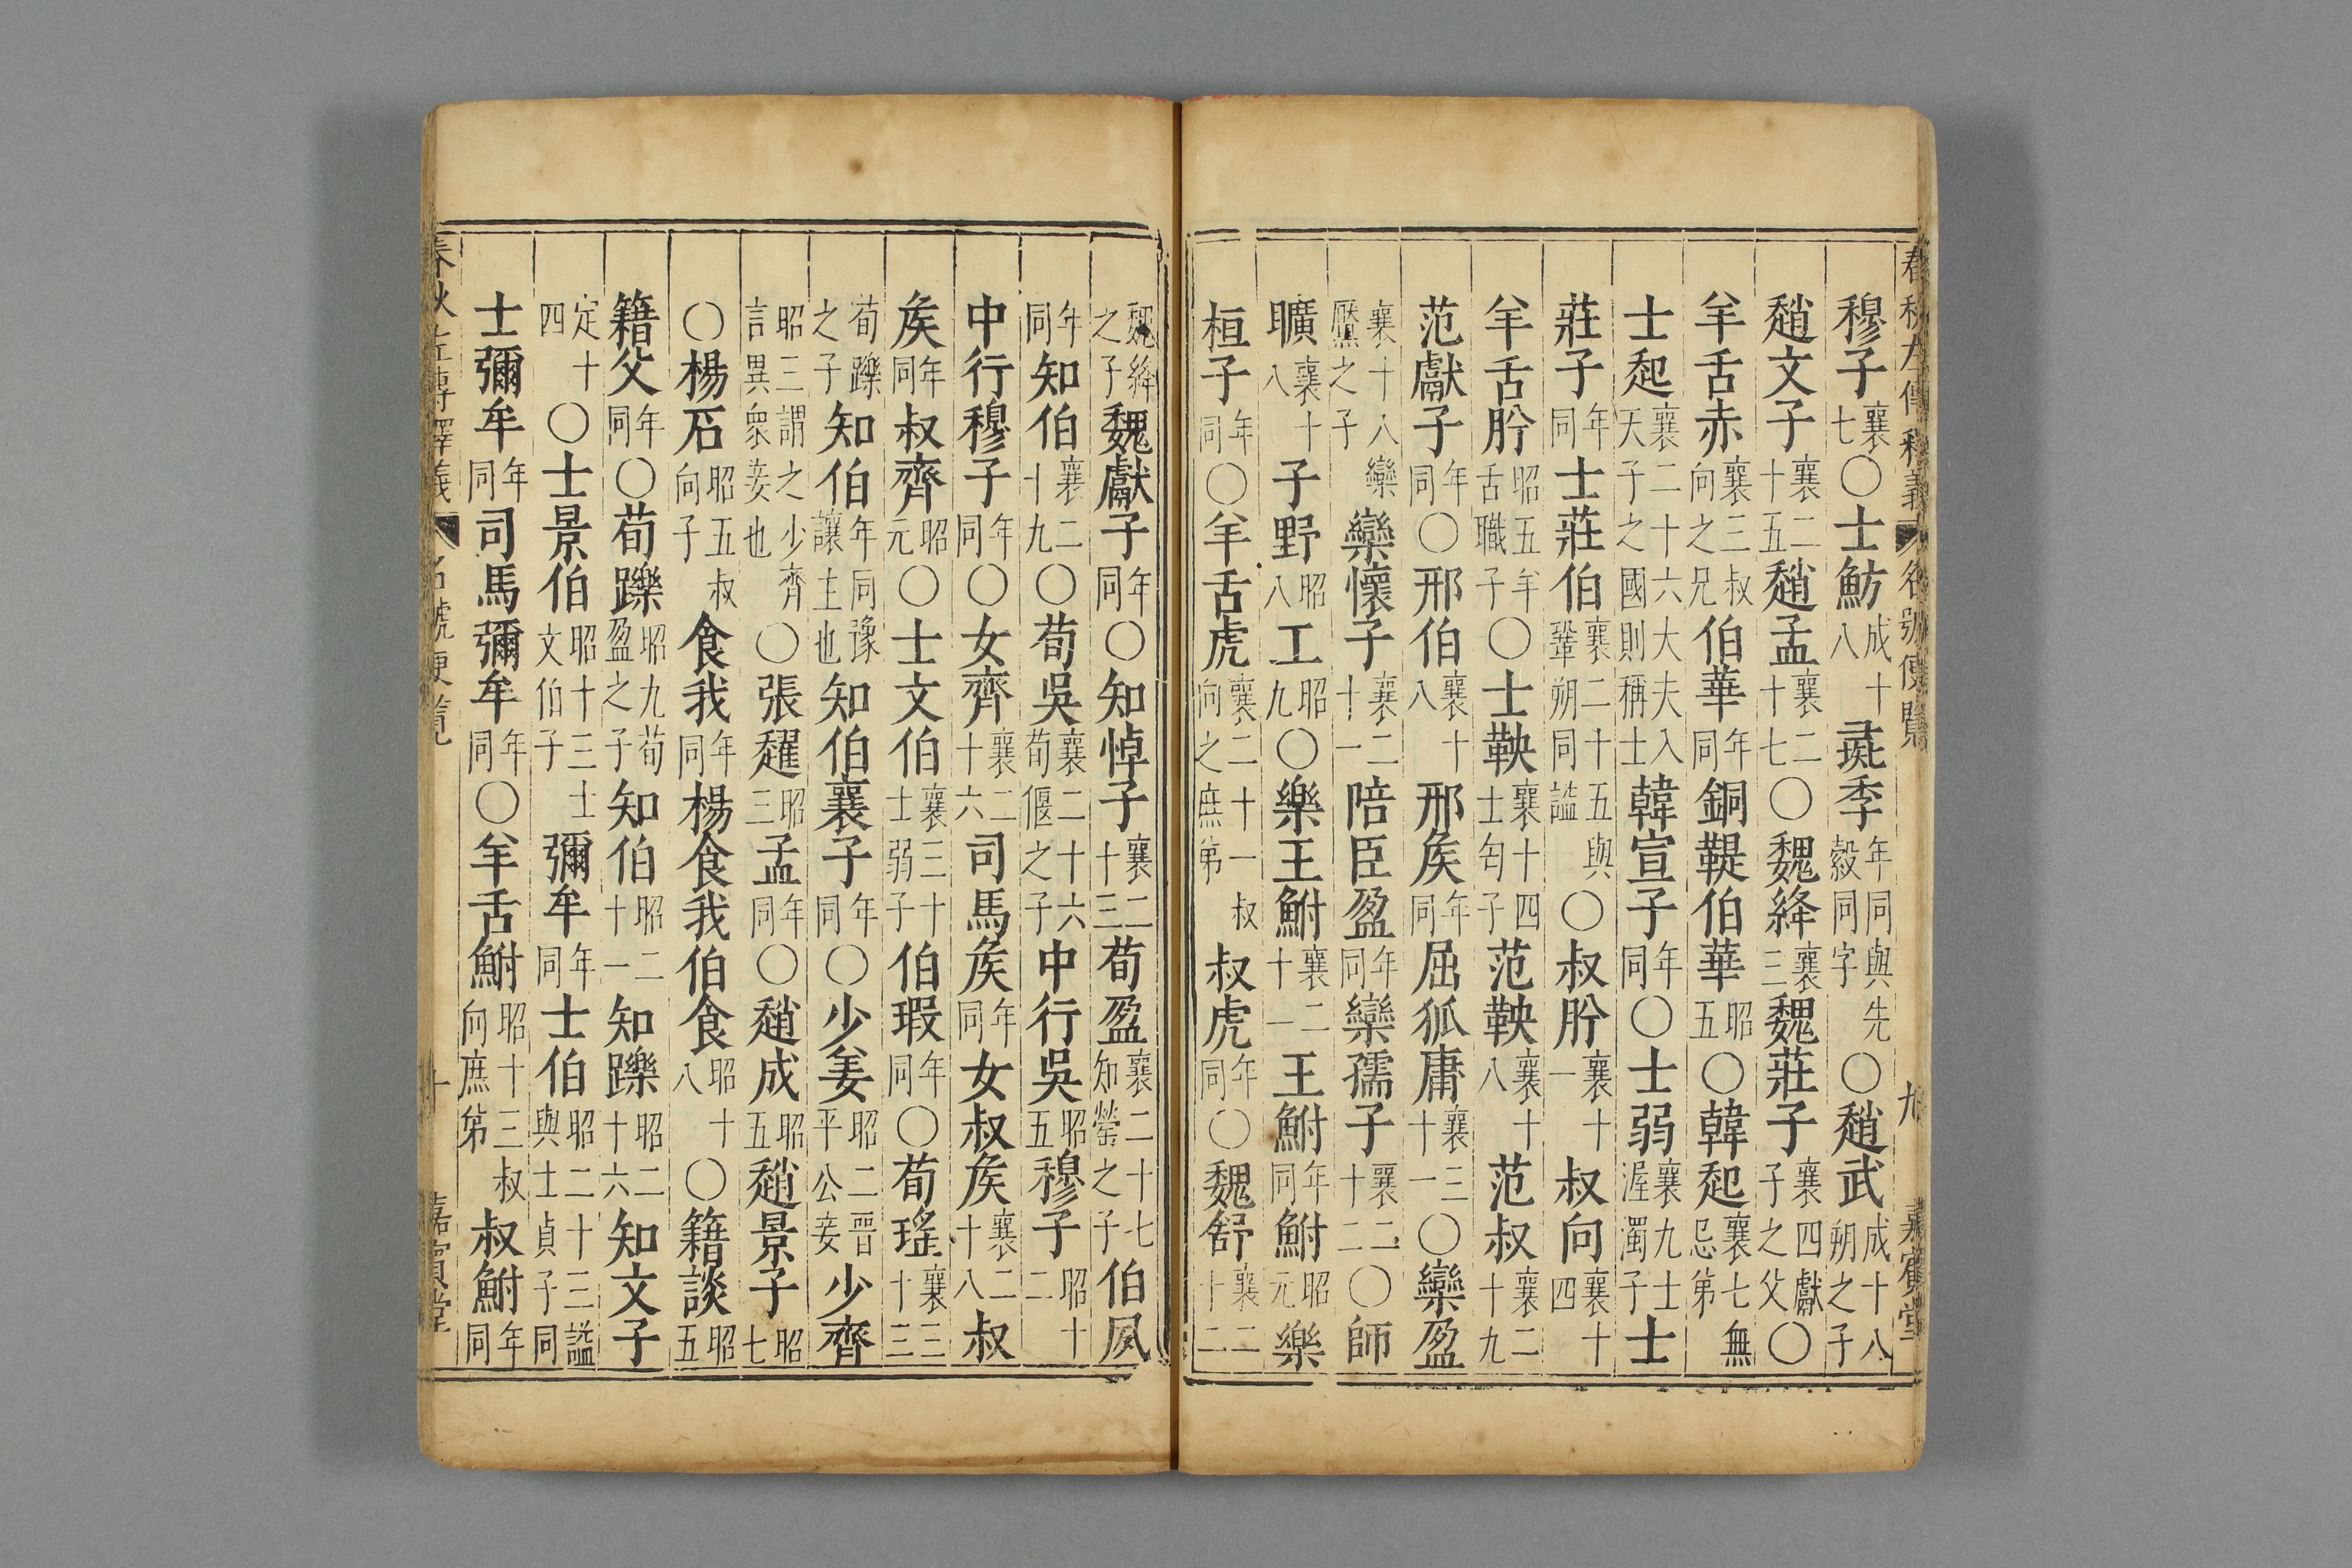 春秋左傳釋義 名號便覽 九 嘉賓堂
穆子襄七〇士魴成十八彘季年同與先縠同字〇趙武成十八朔之子
趙文子襄二十五趙孟襄二十七〇魏絳襄三魏莊子襄四獻子之父〇
羊舌赤襄三叔向之兄伯華年同銅鞮伯華昭五〇韓起襄七無忌第
士起襄二十六大夫入天子之國則稱士韓宣子年同〇士弱襄九士渥濁子士
莊子年同士莊伯襄二十五與鞏朔同謚〇叔肸襄十一叔向襄十四
羊舌肸昭五羊舌職子〇士鞅襄十四士匄子范鞅襄十八范叔襄二十九
范獻子年同〇邢伯襄十八邢侯年同屈狐庸襄三十一〇欒盈
襄十八欒黶之子欒懷子襄二十一陪臣盈年同欒孺子襄二十二〇師
曠襄十八子野昭八工昭九〇樂王鮒襄二十一王鮒年同鮒昭元樂
桓子年同〇羊舌虎襄二十一叔向之庶第叔虎年同〇魏舒襄二十二
魏絳之子魏獻子年同〇知悼子襄二十三荀盈襄二十七知罃之子伯夙
年同知伯襄二十九〇荀吳襄二十六荀偃之子中行吳昭五穆子昭十二
中行穆子年同〇女齊襄二十六司馬侯年同女叔侯襄二十八叔
侯年同叔齊昭元〇士文伯襄三十士弱子伯瑕年同〇荀瑤襄三十三
荀躒之子知伯年同豫讓主也知伯襄子年同〇少姜昭二晉平公妾少齊
昭三謂之少齊言異衆妾也〇張趯昭三孟年同〇趙成昭五趙景子昭七
〇楊石昭五叔向子食我年同楊食我伯食昭十八〇籍談昭五
籍父年同〇荀躒昭九荀盈之子知伯昭二十一知躒昭二十六知文子
定十四〇士景伯昭十三士文伯子彌牟年同士伯昭二十三謚與士貞子同
士彌牟年同司馬彌牟年同〇羊舌鮒昭十三叔向庶第叔鮒年同
春秋左傳釋義 名號便覽 十 嘉賓堂